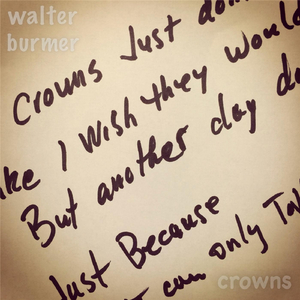 walter
burmer
Crowns Just don
ke I Wish they Would
But another day d
Just Because
can only Ta
crowns